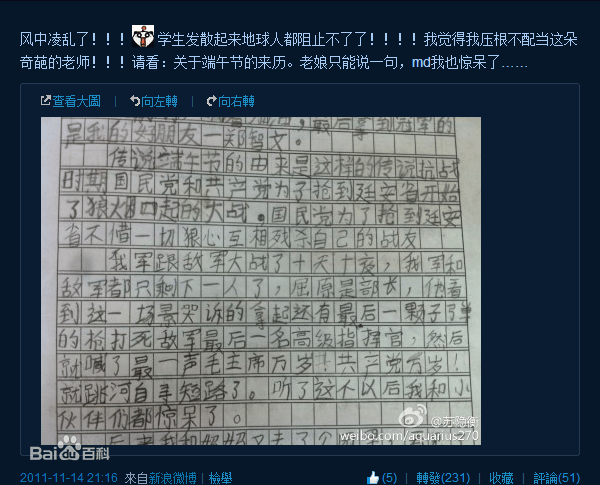 风中凌乱了！！！学生发散起来地球人都阻止不了了！！！！我觉得我压根不配当这朵
奇葩的老师！！！请看：关于端午节的来历。老娘只能说一句，md我也惊呆了……
查看大圖 | 向左轉 | 向右轉
最后拿到冠军的
是我的好朋友一郑智文。
传说端午节的由来是这样的传说抗战
时期国民党和共产党为了抢到廷安省开始
了狼烟四起的大战。国民党为了抢到廷安
省不惜一切狠心互相残杀自己的战友
我军跟敌军大战了十天十夜，我军和
敌军都只剩下一人了，屈原是部长，他看
到这一场景哭诉的拿起还有最后一颗子弹
的枪打死敌军最后一名高级指挥官，然后
就喊了最一声毛主席万岁！共产党万岁！
就跳河自寻短路了。听了这个以后我和小
伙伴们都惊呆了。
后来我和妈妈又去了
@苏隐衡
weibo.com/aquarius270
Bai du 百科
2011-11-14 21:16 來自新浪微博 | 檢舉
(5) | 轉發(231) | 收藏 | 評論(51)